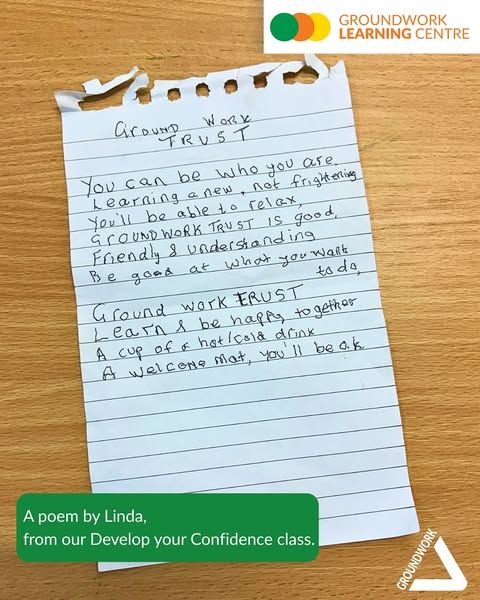 GROUNDWORK
LEARNING CENTRE
Ground Work
TRUST
You can be who you are.
Learning a new, not frightening
You'll be able to relax,
GROUNDWORK TRUST IS good,
Friendly & understanding
Be good at what you want
to do,
Ground work TRUST
Learn & be happy together
A cup of a hot/cold drink
A welcome mat, you'll be o.k
A poem by Linda,
from our Develop your Confidence class.
GROUNDWORK